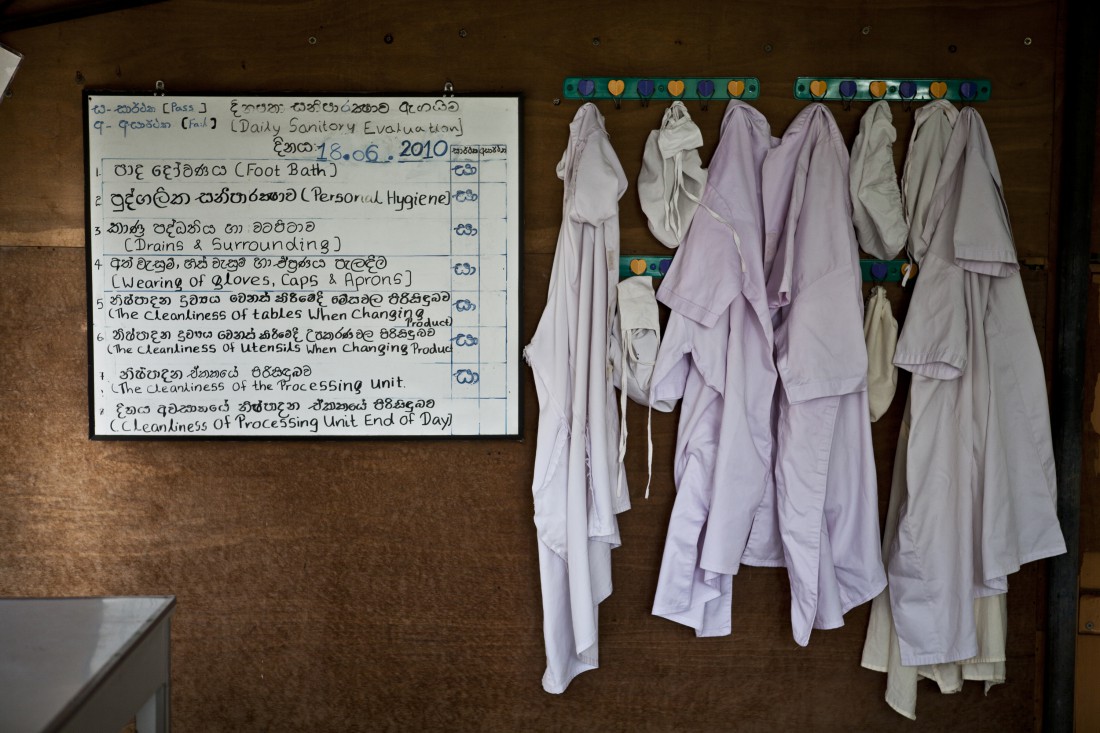 ස- සාර්ථක [Pass]
අ- අසාර්ථක [Fail]
දිනපතා සනීපාරක්ෂාව ඇගයීම
[Daily Sanitory Evaluation]
දිනය: 18.06.2010
සාර්ථක අසාර්ථක
1. පාද දෝවණය (Foot Bath) සා
2 පුද්ගලික සනීපාරක්ෂාව (Personal Hygiene) සා
3 කාණු පද්ධතිය හා වටපිටාව සා
[Drains & Surrounding]
4 අත් වැසුම්, හිස් වැසුම් හා ඒප්‍රණය පැලඳීම සා
[Wearing of gloves, Caps & Aprons]
5 නිෂ්පාදන ද්‍රව්‍යය වෙනස් කිරීමේදී මේසවල පිරිසිදුබව සා
(The Cleanliness of tables When Changing
Product)
6 නිෂ්පාදන ද්‍රව්‍යය වෙනස් කිරීමේදී උපකරණවල පිරිසිදුබව සා
(The Cleanliness of Utensils When Changing Product
7 නිෂ්පාදන ඒකකයේ පිරිසිදුබව සා
(The Cleanliness of the Processing Unit.
8 දිනය අවසානයේ නිෂ්පාදන ඒකකයේ පිරිසිදුබව
(Cleanliness of Processing Unit End of Day)